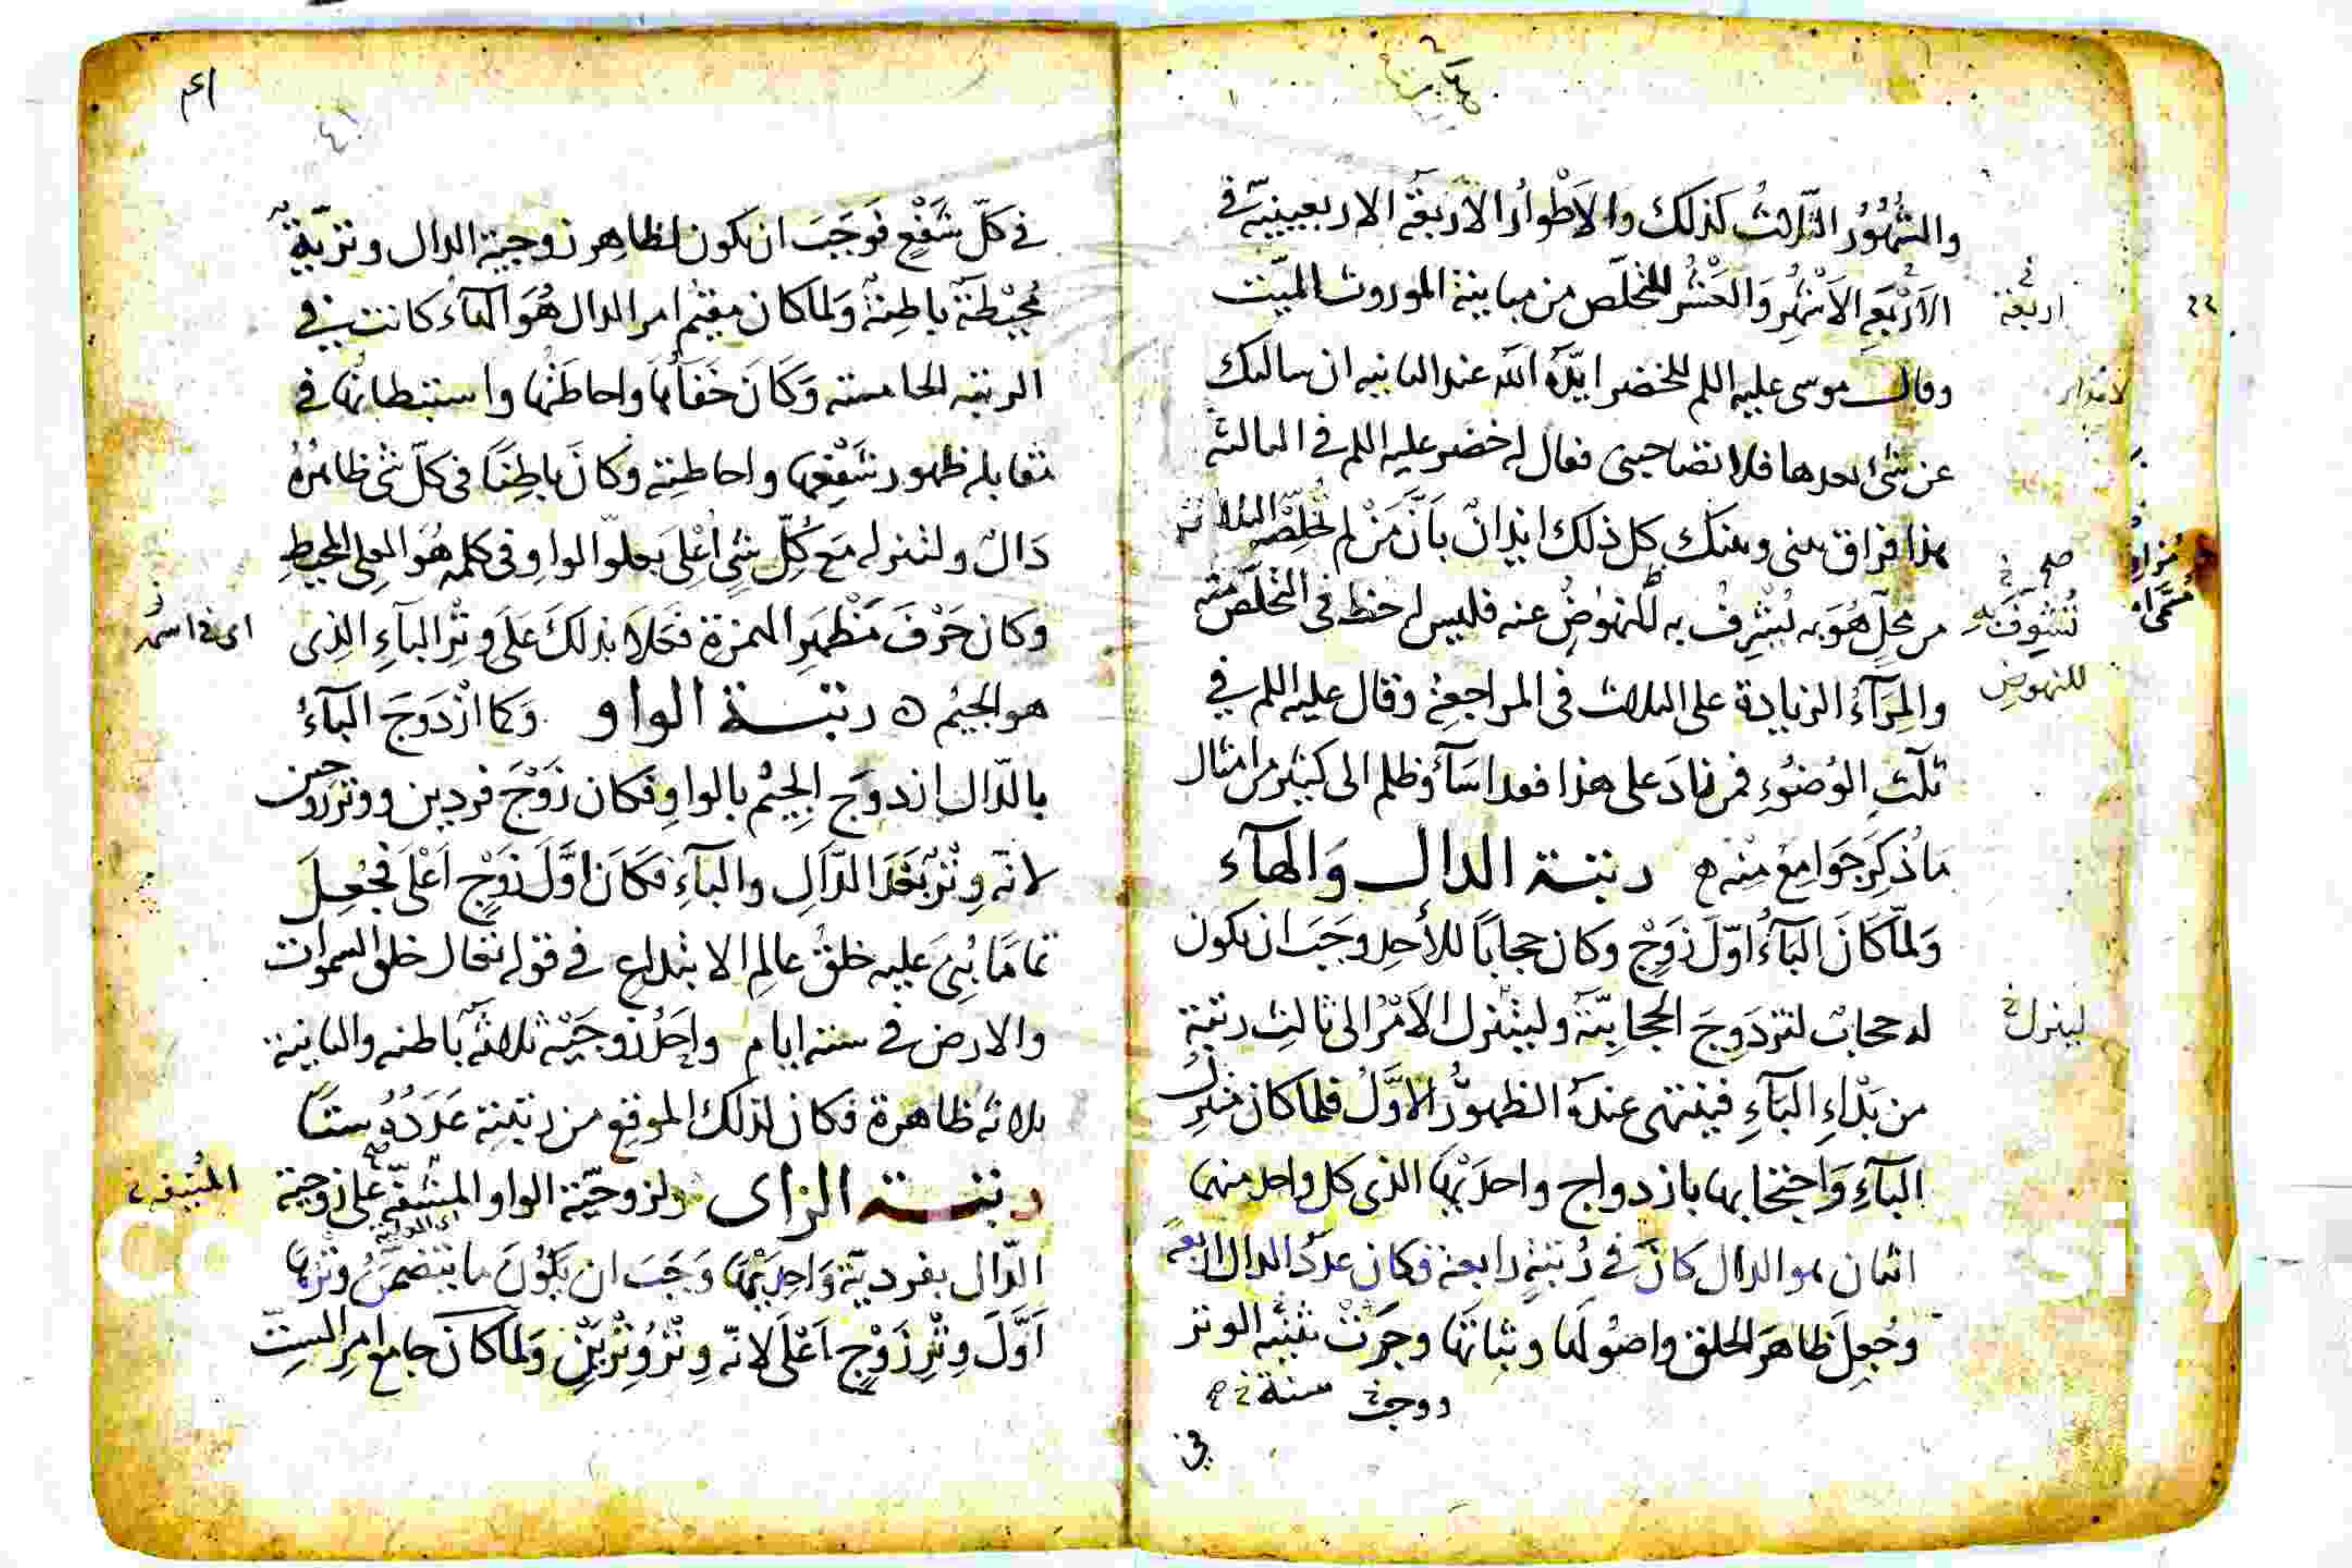 والشُّهُورُ الثَّلاثُ كذلك والاَطْوارُ الاَربعَةُ الاربعينيَّة في
الاَرْبَعَةِ الاَشْهُرِ وَالعَشْرُ للتخلّص من مباينة الموروث الميّت
وقال موسى عليه اللم للخضر ايّدَهُ اللّه عند الثانيه ان سالتك
عن شئ بعدها فلا تصاحبنى فقال له خضر عليه اللم فى الثالثة
هذا فراق بينى وبينك كل ذلك ايذانٌ بأنَّ مَنْ لم تُخلِصْه الثلاثة
من محلٍّ هُوَ به تشرف به للنهوضِ عنه فليس له حظ فى التخلّص منه
والمِرَآءُ الزيادة على الثلاث فى المراجعة وقال عليه اللم في
ثلَثِ الوُضوُءِ فمن زادَ على هذا فقد اسَآءَ وظلم الى كثير من امثال
مَا ذُكِرَ جَوامِعُ منه ه رتبة الدال وَالهآء
وَلمّا كَانَ البَآءُ اوّلَ زَوْجٍ وكان حجاباً للأحدِ وجَبَ ان يكون
له حجابٌ لتزدَوِجَ الحجابِيّة وليتنزل الاَمْرُ الى ثالثِ رتبةٍ
من بَدْءِ البَآءِ فينتهى عندَهُ الظهورُ الاوّلُ فلما كان منزل
البآءِ وَاحتجابها بازدواج واحدَيْها الذى كل واحد منهما
اثنان هو الدال كَانَ فى رُتبَةٍ رابعة فكان عدَدُ الدال اربعةً
وجُعِلَ ظاهَر الخلق واصُولها وثباتها وجَرَتْ تثنية الوتر
اربعة
لينزل
للنهوض
في
في كلّ شَفْعٍ فوَجَبَ ان يكون لظاهر زوجية الدال وتربيعة
مُحيْطَةٌ باطِنةٌ وَلما كان مقيْمُ امر الدال هُوَ الهآءُ كانت في
الرتبة الخامسة وَكَانَ خَفَآءُها واحاطَتُها واستبطانُها في
مقابلة ظهور شَفْعِها واحاطته وكانَ باطِنًا فى كلّ شئ ظاهرُهُ
دَالٌ ولتنزله مَعَ كُلِّ شئٍ اَعْلَى بعلوّ الواو فى كلمة هُوَ العلى المحيط
وكان حَرْفَ مَظْهَرِ الهمزة فعَلا بذلكَ عَلَى وِتْرِ البآءِ الذى
هو الجيْم ه رتبة الواو وَكما ازْدَوَجَ البآءُ
بالدّال ازدوَجَ الجيْم بالواوِ فكان زَوْجَ فردين ووتر زوجين
لانّه وِتْرٌ بَعْدَ الدَّالِ والبآءِ فكَانَ اوَّلَ زَوْجٍ اَعْلَى فجُعِلَ
تمامًا بُنِىَ عليه خلقُ عالمِ الابتداع في قوله تعالى خلق السموات
والارض في ستة ايام واِحدُ زوجَيْهِ ثلاثةٌ باطنه والثانية
ثلاثه ظاهرة فكان لذلك الموقع من رتبته عَدَدُهُ ستًّا
رتبة الزاى ولزوجيّة الواو المشفّة على زوجية
الدّال بفرديّة وَاحِدَيْها وَجَبَ ان يَكوُنَ ما يتضمّنُ وتْرَها
اَوَّلَ وِتْرِ زَوْجٍ اَعْلَى لانّه وِتْرُ وِتْرَيْنِ وَلمّا كانَ جامع امرِ الستِّ